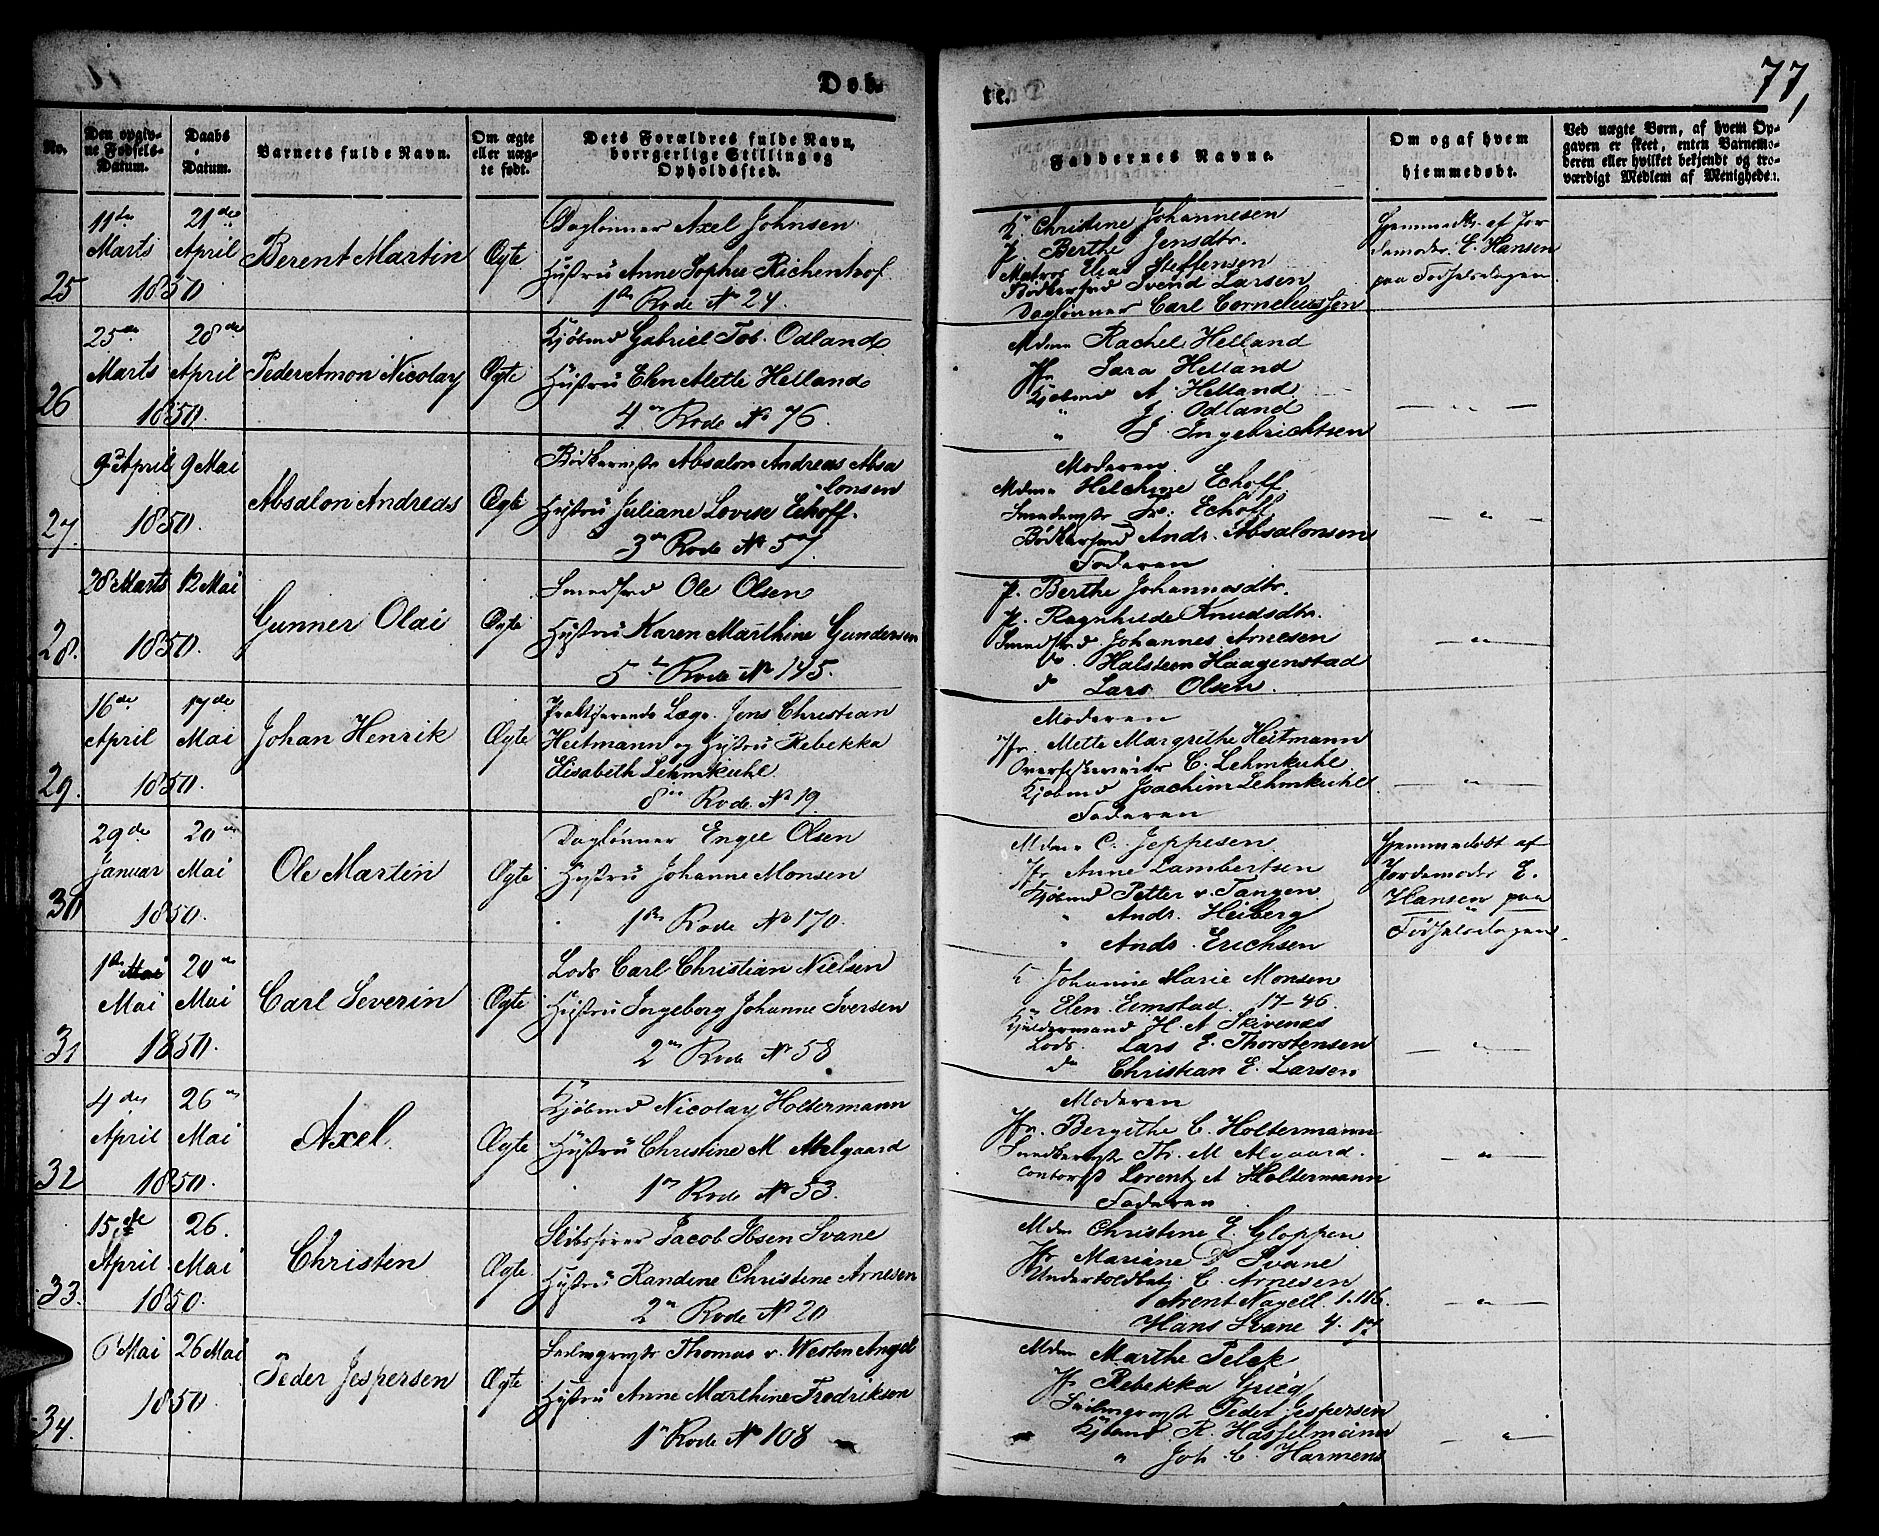 Døb-
te.
77,
No.
Den opgiv-
ne Fødsels-
Datum.
Daabs
Datum.
Barnets fulde Navn.
Om ægte
eller uæg-
te født.
Dets Forældres fulde Navn,
borrgerlige Stilling og
Opholdssted.
Faddernes Navne.
Om og af hvem
hjemmedøbt.
Ved uægte Børn, af hvem Op-
gaven er skeet, enten Barnemo-
deren eller hvilket bekjendt og tro-
værdigt Medlem af Menigheden.
25
11te
Marts
21de
April
1850
Berent Martin
Ægte
Daglønner Axel Johnsen
Hustru Anne Sophie Richenhof
1ste Rode No 24.
K. Christine Johannesen
P. Berthe Jensdtr.
Matros Elias Steffensen
Bødkersvd Svend Larsen
Daglønner Carl Corneliussen
Hjemmedbt. af Jor
demoder E. Hansen
paa Fødselsdagen
26
25de
Marts
28de
April
1850.
Peder Amon Nicolay
Ægte
Kjøbmd Gabriel Tob. Odland
Hustru Elen Alette Helland
4de Rode No 76.
Mdme Rachel Helland
Jfr. Sara Helland
Kjøbmd A. Helland
" J. Odland
" J. Ingebrichtsen
— " —
27.
9de April
9 Mai
1850.
Absalon Andreas
Ægte
Bødkermstr Absalon Andreas Absa
lonsen
Hustru Juliane Lovise Echoff.
3die Rode No 57
Moderen
Mdme Helchine Echoff
Smedemstr Fr. Echoff
Bødkersvd Andr. Absalonsen
Faderen
— " —
28.
28 Marts
12 Mai
1850.
Gunner Olai
Ægte
Smedsvd Ole Olsen
Hustru Karen Marthine Gundersen
5te Rode No 145.
P. Berthe Johannesdtr.
P. Ragnhilde Knudsdtr.
Smedsvd Johannes Arnesen
do. Halsteen Haagenstad
do Lars Olsen.
— " —
29.
16de
April
17de
Mai
1850.
Johan Henrik
Ægte
Praktiserende Læge Jens Christian
Heitmann og Hustru Rebekka
Elisabeth Lehmkuhl
8de Rode. No 19
Moderen
Jfr. Mette Margrethe Heitmann
C. Lehmkuhl
Kjøbmd Joachim Lehmkuhl.
Faderen
— " —
30
29de
Januar
20de
Mai
1850.
Ole Martin
Ægte
Daglønner Engel Olsen
Hustru Johanne Monsen
1ste Rode No 170.
Mdme C. Jeppesen
Jfr. Anne Lambertsen
Kjøbmd Petter v. Tangen
" Andr. Heiberg
" Andr. Erichsen
Hjemmedøbt af
Jordemoder E.
Hansen paa
Fødselsdagen.
31
1ste
Mai
20de
Mai
1850.
Carl Severin
Ægte
Lods Carl Christian Nielsen
Hustru Ingeborg Johanne Iversen
2den Rode No 58.
K Johanne Marie Monsen
" Elen Eimstad. 17-46.
Kjeldermand H. A Skivenes
Lods. Lars E. Thorstensen
do Christian E. Larsen
— " —
32
4de
April
26de
Mai
1850.
Axel.
Ægte
Kjøbmd Nicolay Holtermann
Hustru Christine M Melgaard
1ste Rode No 53.
Moderen
Jfr. Bergithe C. Holtermann
Th. M Algaard.
Contorist Lorentz A Holtermann
Faderen
— " —
33.
15de
April
26.
Mai
1850.
Christen
Ægte
Skibsfører Jacob Ibsen Svane
Hustru Randine Christine Arnesen
2den Rode No 20
Mdme Christine E. Gloppen
Jfr Mariane D Svane
Undertoldbetj. C. Arnesen
Arent Nagell. 1. 116.
Hans Svane 4.
— " —
34.
6 Mai
26 Mai
1850.
Peder Jespersen
Ægte
Seilmagermstr Thomas v. Westen Angel
Hustru Anne Marthine Fredriksen
1ste Rode No 108
Mdme Marthe Pelck
Jfr Rebekka Grieg
Seilmagermstr Peder Jespersen
Kjøbmd R. Hasselmann
" Joh. C. Harmens
— " —